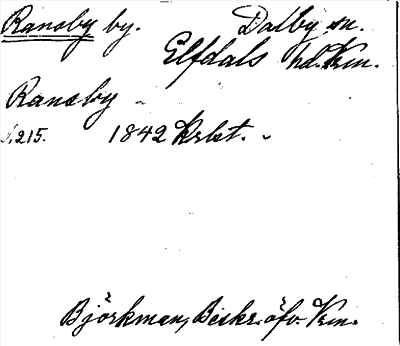 Ransby by. Dalby sn.
Elfdals hd. Vrm.
Ransby
S. 215. 1842 Krbt.
Björkman, Beskr. öfv. Vrm.